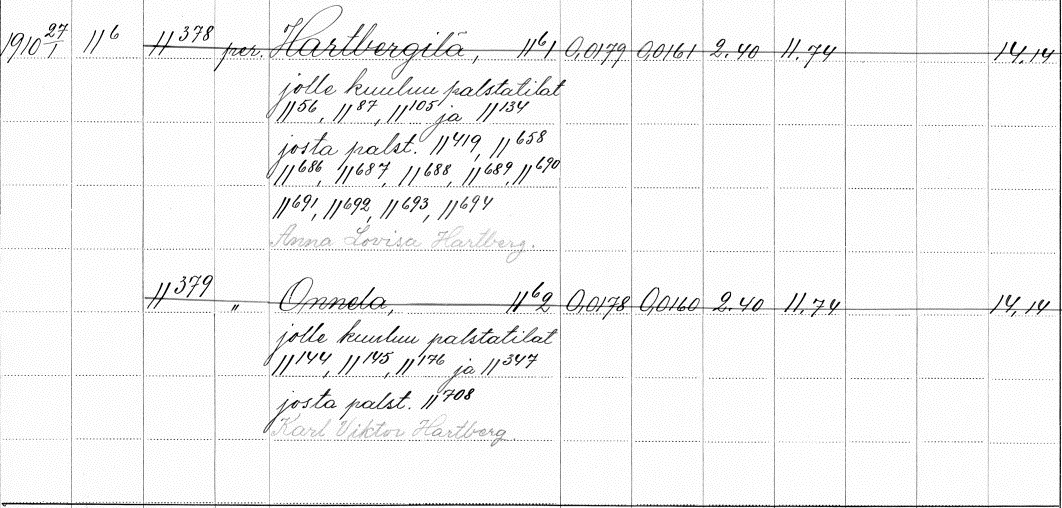 1910 27/1 11⁶ 11³⁷⁸ per. Hartbergilä, 11⁶1 0,0179 0,0161 2.40 11.74 14.14
jolle kuuluu palstatilat
11⁵⁶, 11⁸⁷, 11¹⁰⁵ ja 11¹³⁴
josta palst. 11⁴¹⁹, 11⁶⁵⁸
11⁶⁸⁶, 11⁶⁸⁷, 11⁶⁸⁸, 11⁶⁸⁹, 11⁶⁹⁰
11⁶⁹¹, 11⁶⁹², 11⁶⁹³, 11⁶⁹⁴
Anna Lovisa Hartberg.
11³⁷⁹ " Onnela, 11⁶2 0,0178 0,0160 2.40 11.74 14,14
jolle kuuluu palstatilat
11¹⁴⁴, 11¹⁴⁵, 11¹⁷⁶ ja 11³⁴⁷
josta palst. 11⁷⁰⁸
Karl Viktor Hartberg